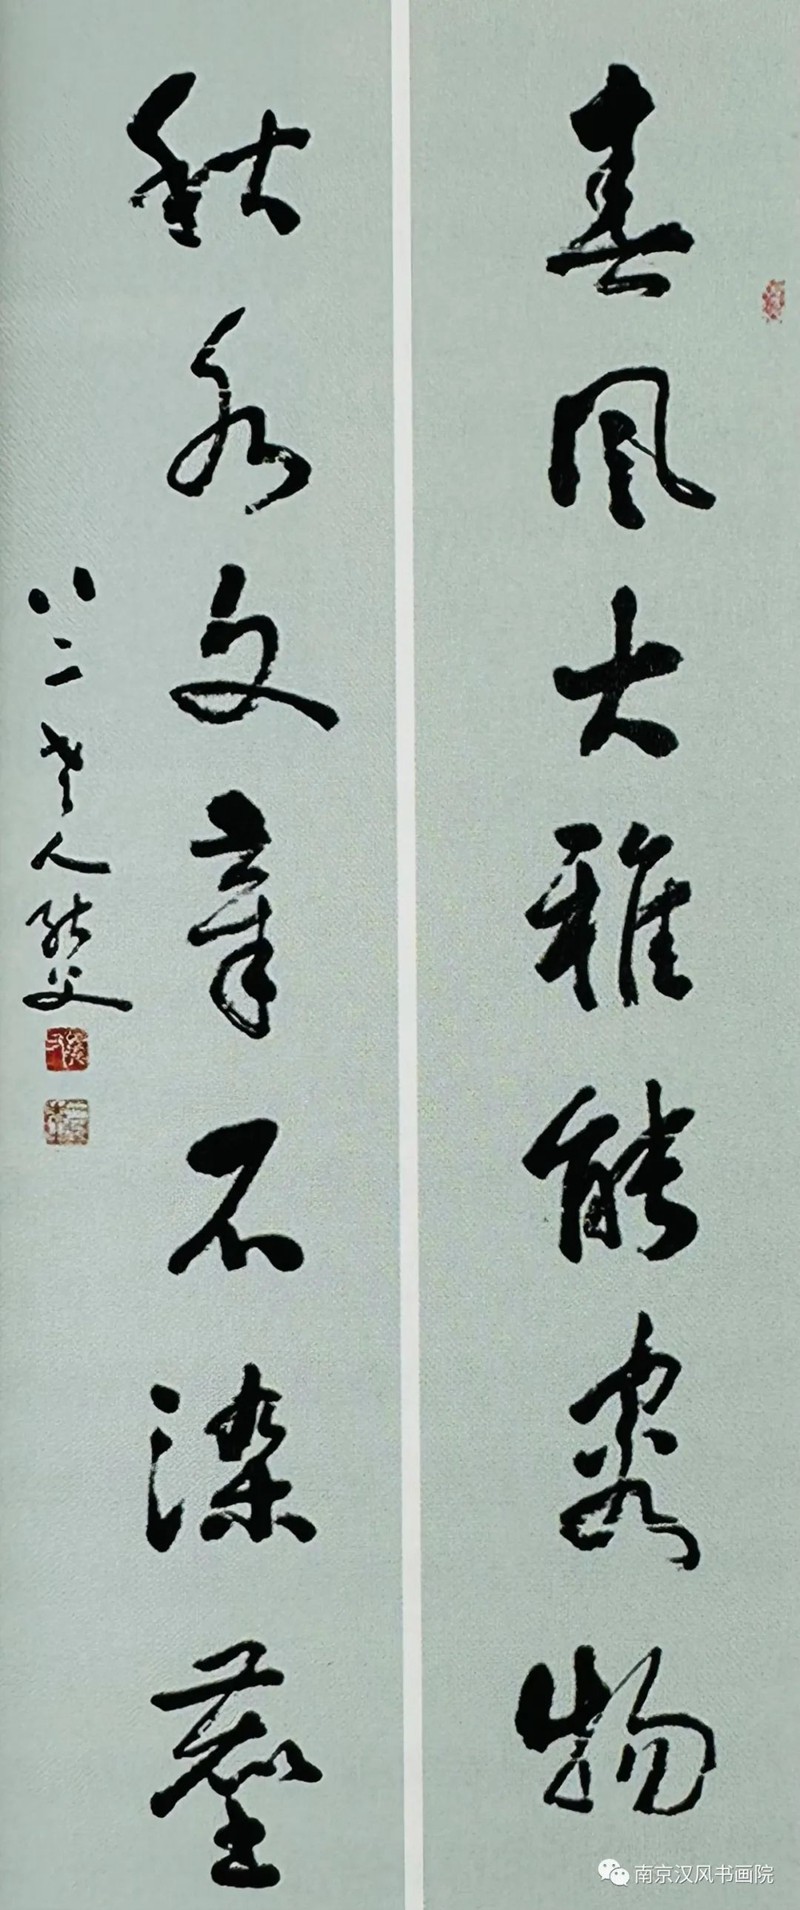 春風大雅能容物
秋水文章不染塵
八二老人父
南京汉风书画院